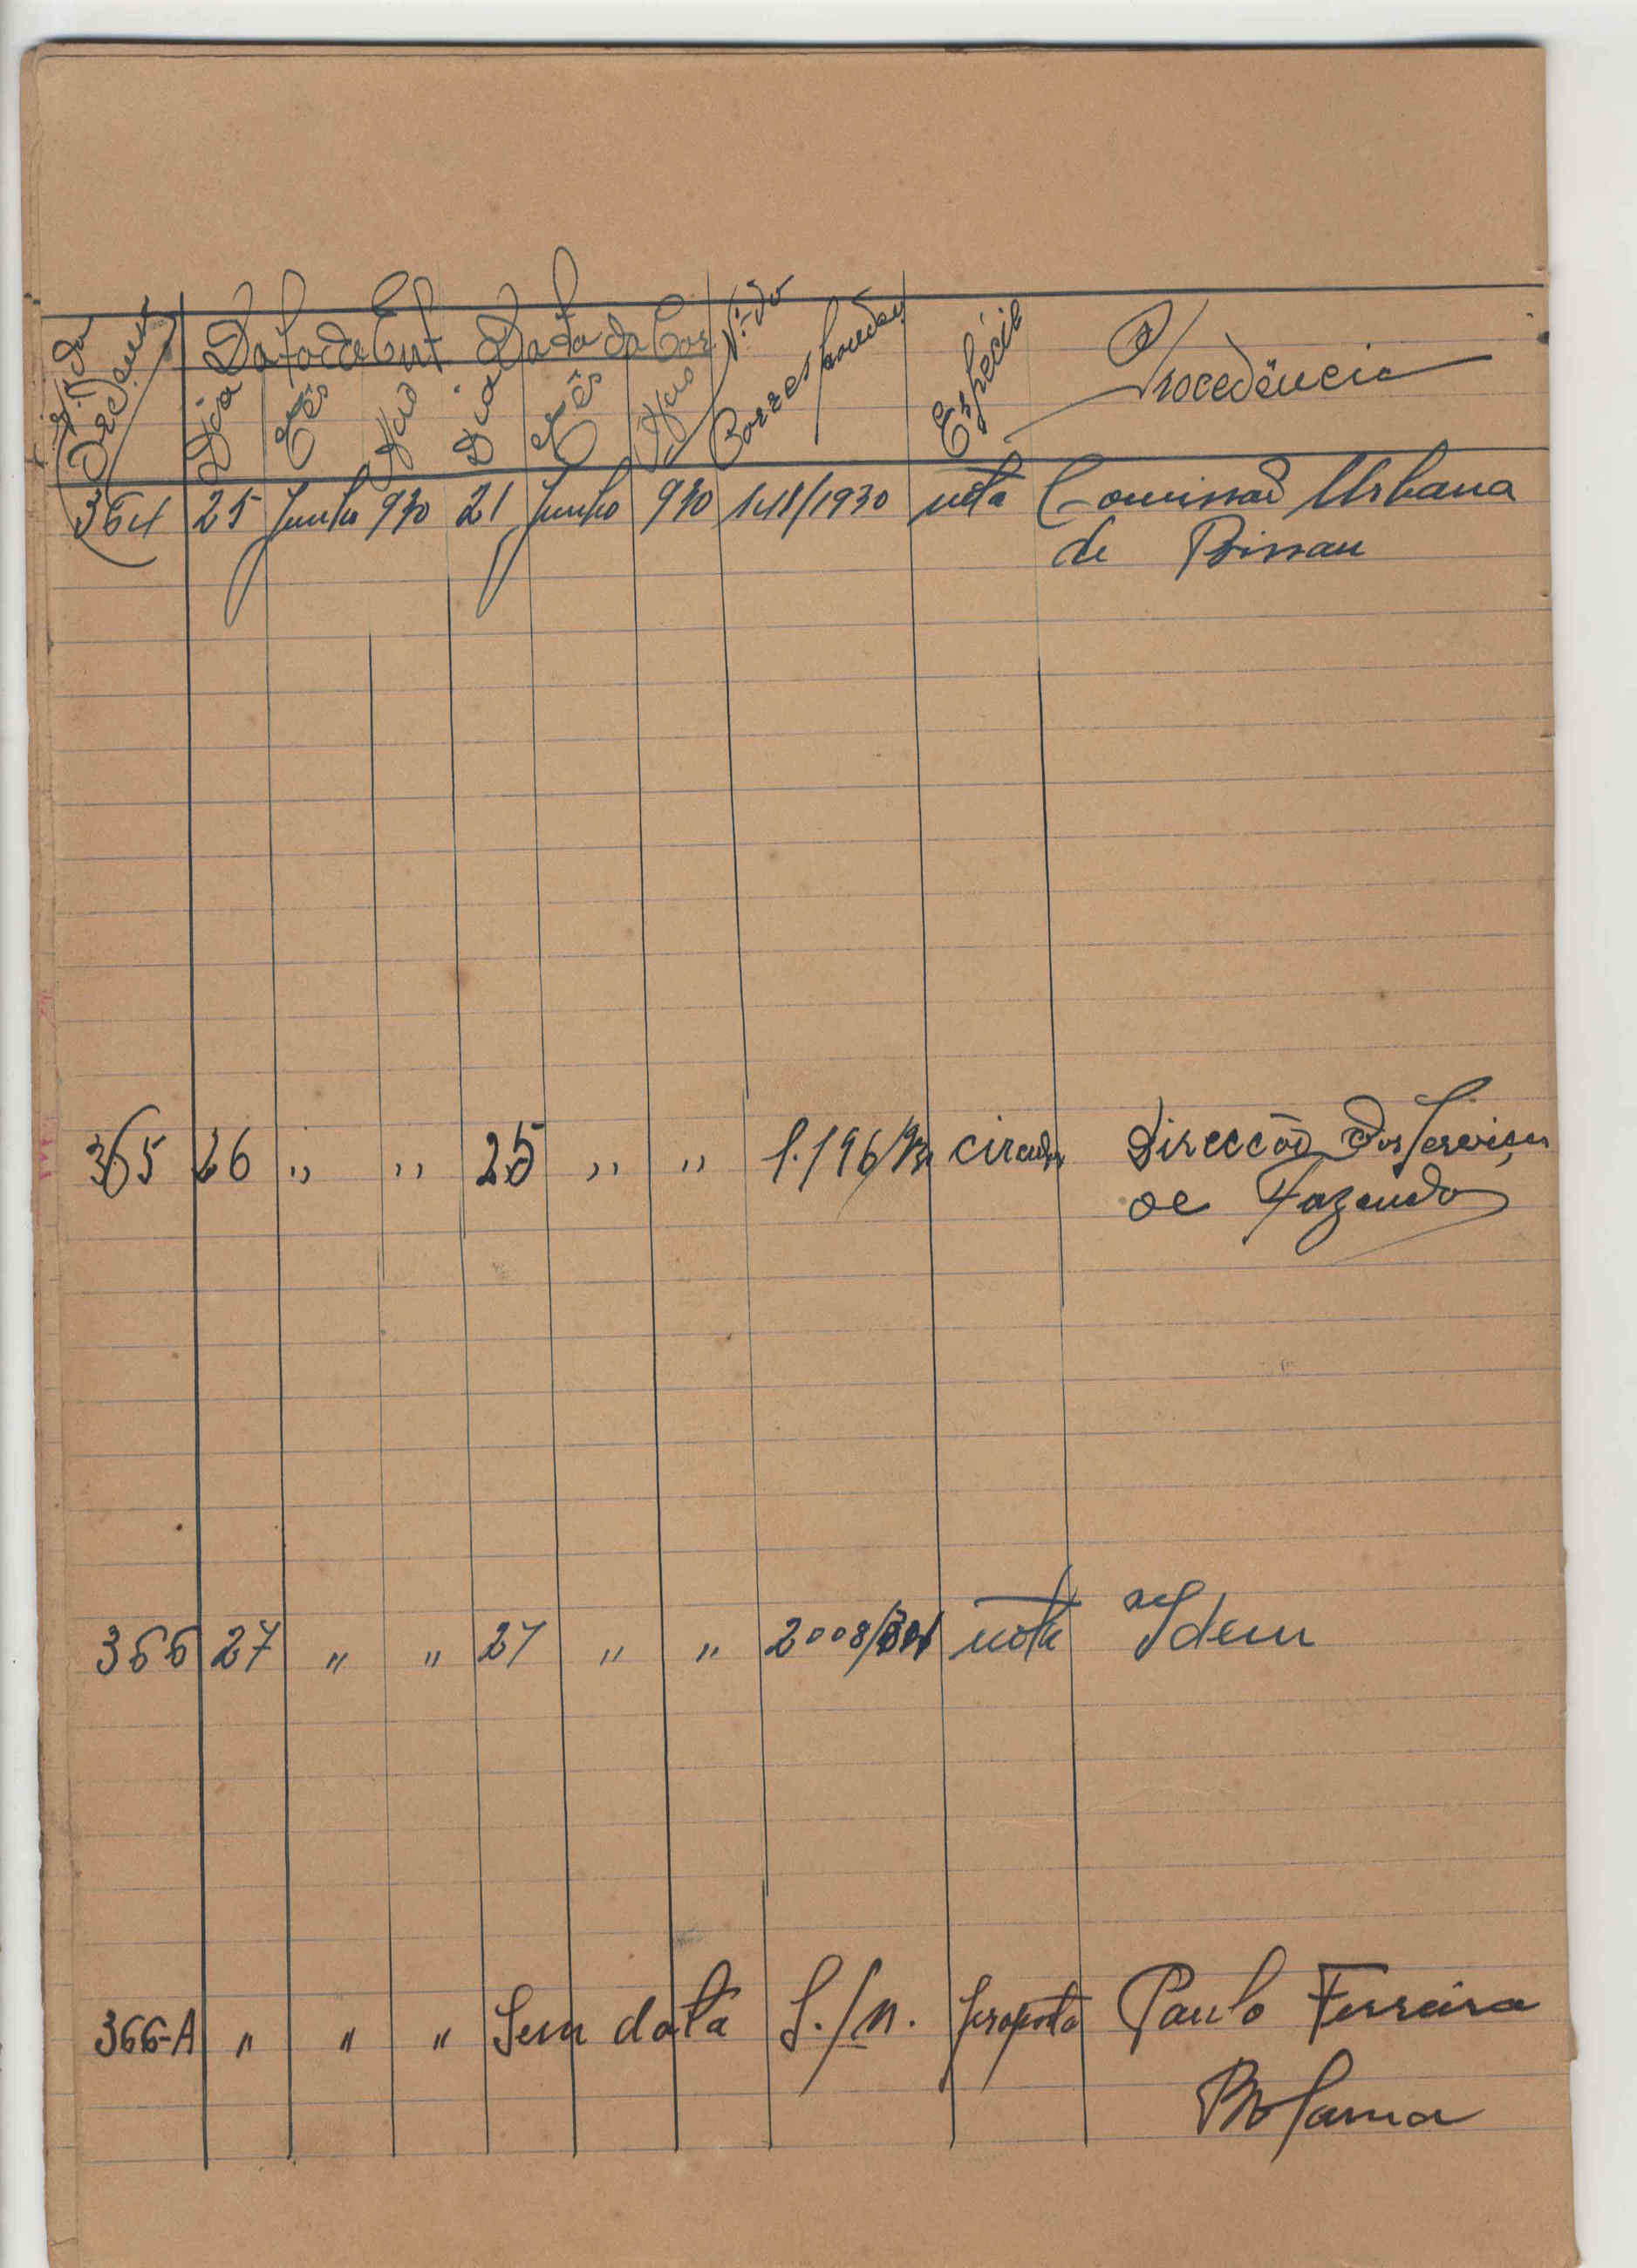 Nº da Data de Ent Data da Cor Nº do
Ordem Dia Mês Ano Dia Mês Ano Corresponden Espécie Procedência
364 25 Junho 930 21 Junho 930 /1930 nota Comissão Urbana
de Bissau
365 26 " " 25 " " 1.196/930 circular Direcção dos Serviços
de Fazenda
366 27 " " 27 " " 2008/ nota Idem
366-A " " " Sem data S./n. proposta Paulo Ferreira
Bolama